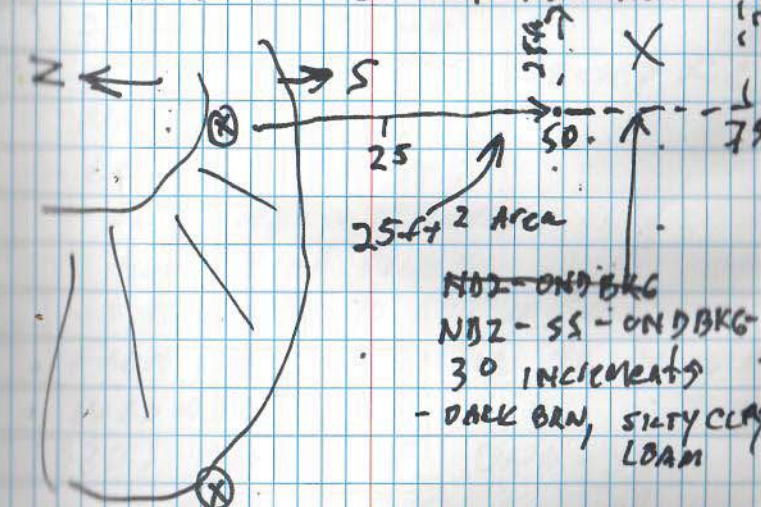 N S
X
25 50 75
25 ft² Area
NBZ-ONDBKG
NBZ-SS-ONDBKG-
30 increments
- DARK BRN, SILTY CLAY
LOAM